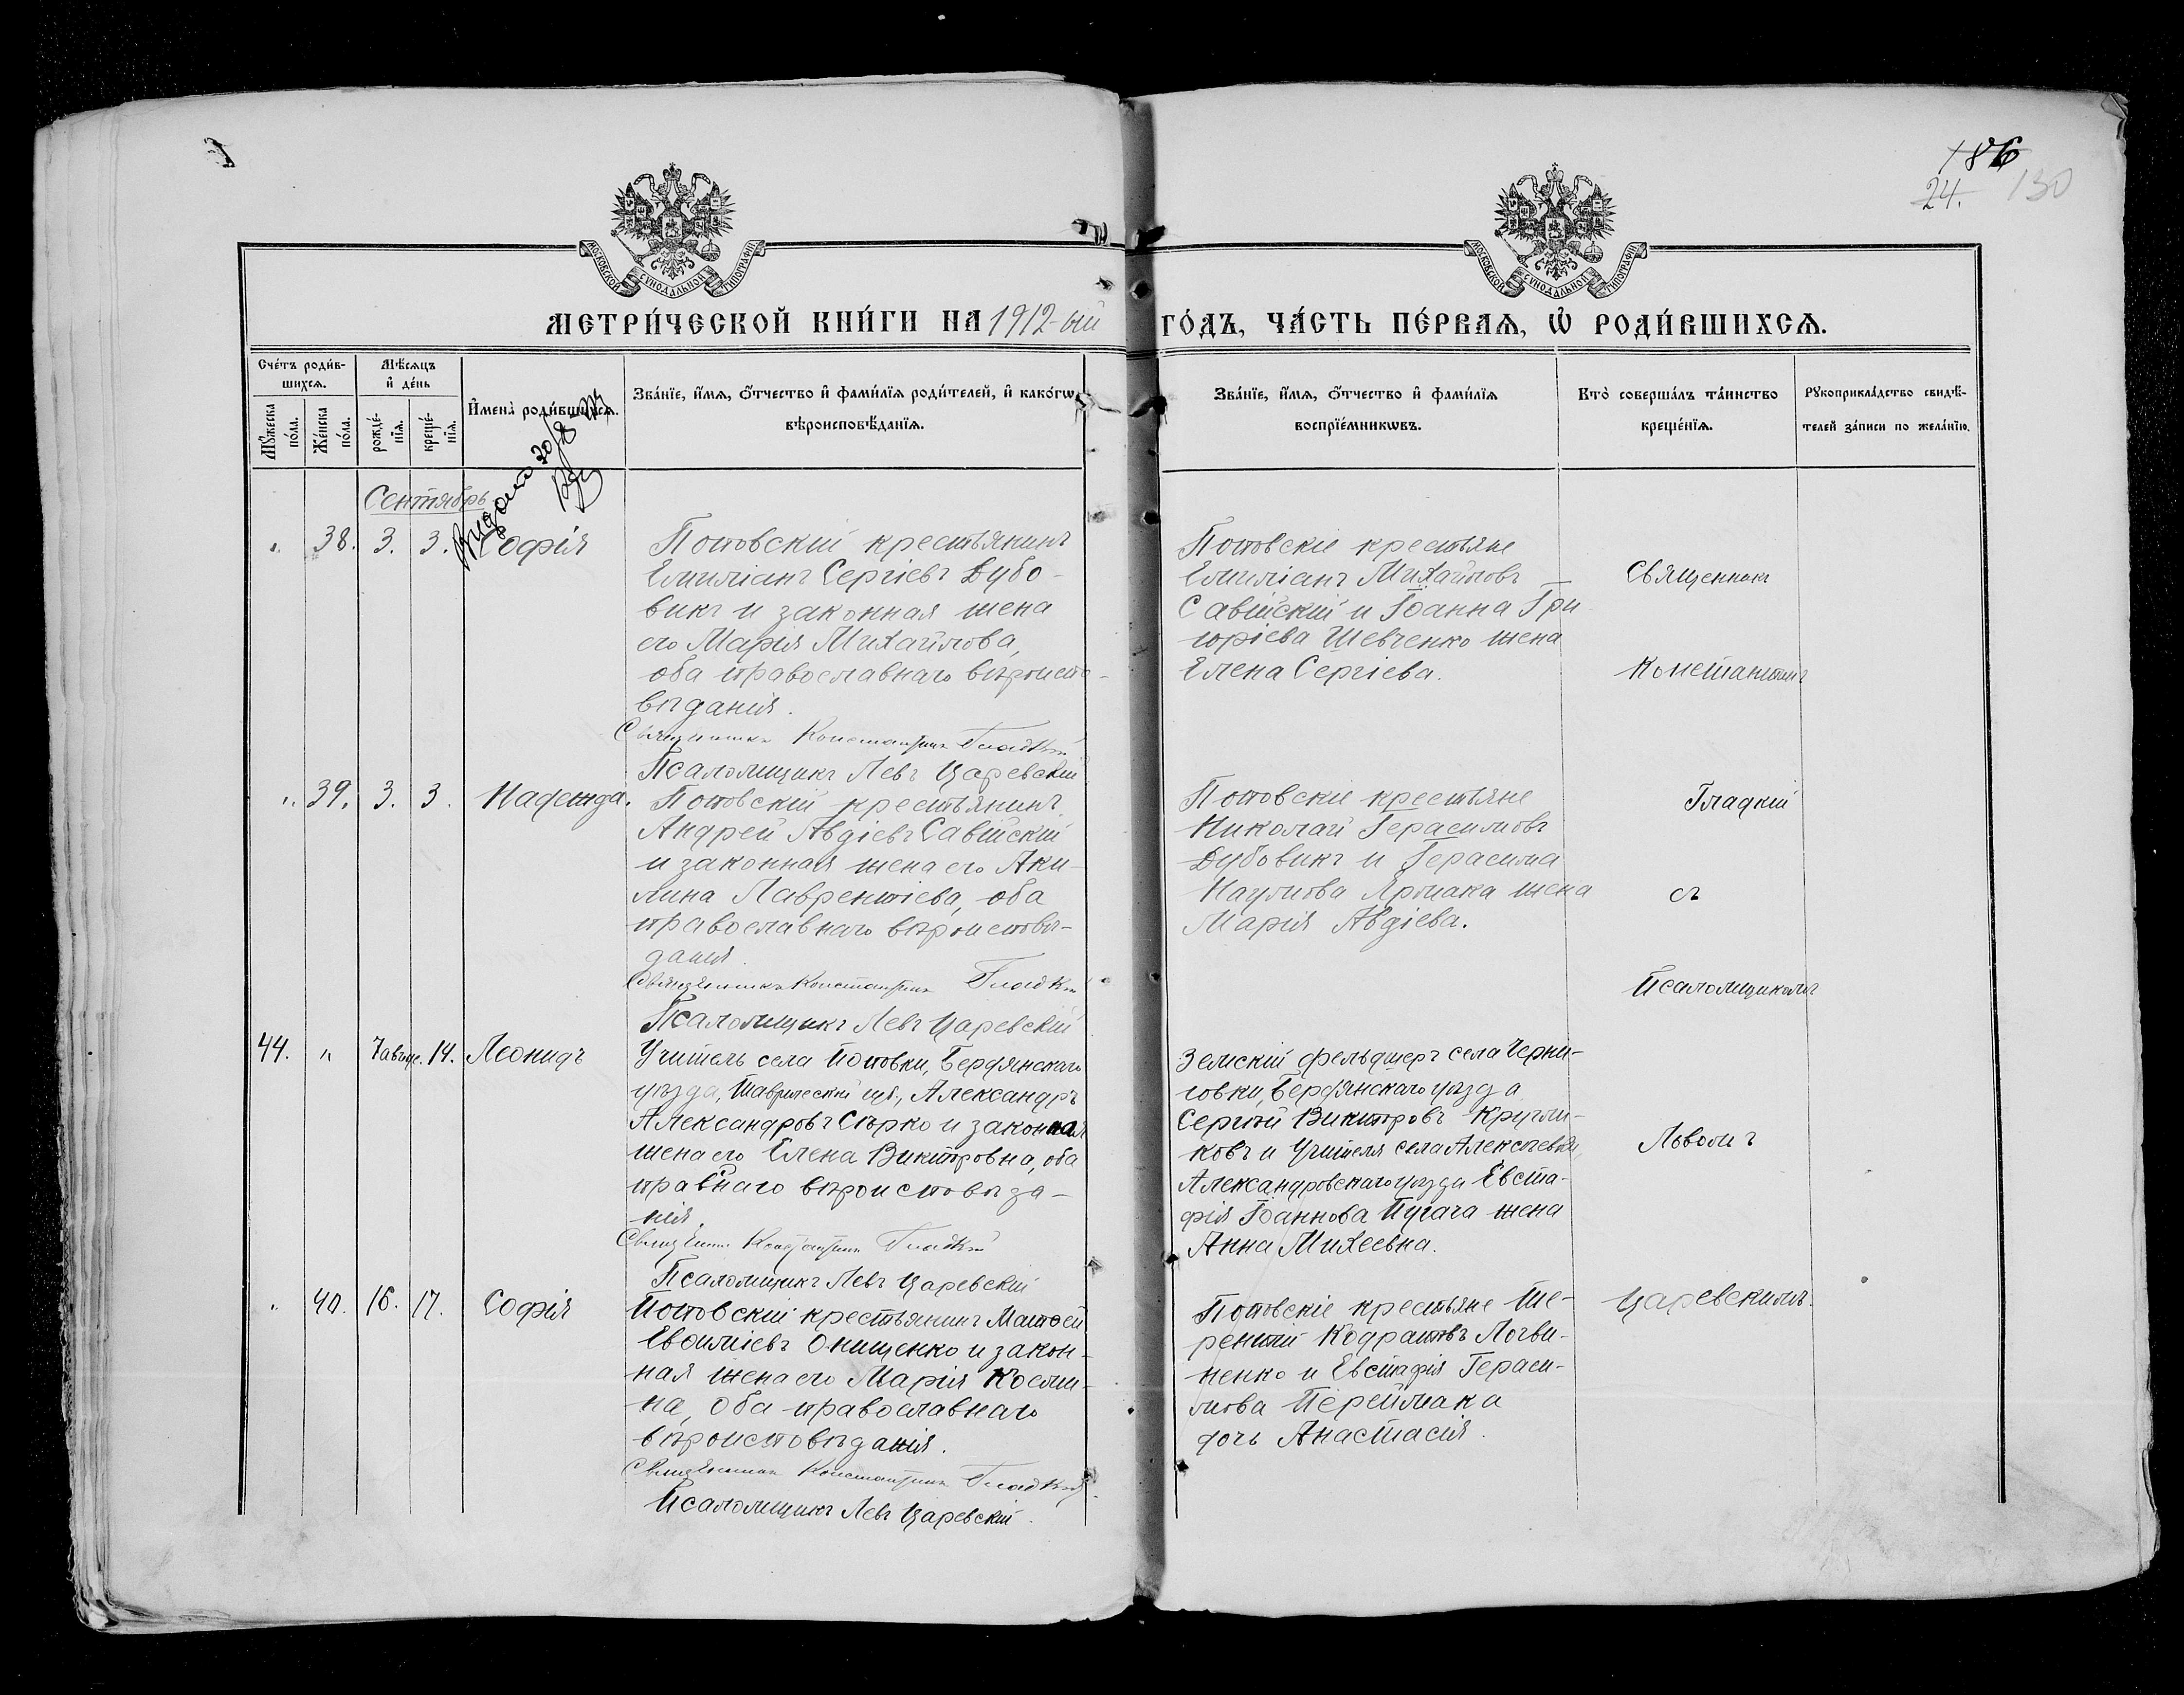 186
24. 130
МОСКОВСКОЙ СѴНОДАЛЬНОЙ ТИПОГРАФІИ
МОСКОВСКОЙ СѴНОДАЛЬНОЙ ТИПОГРАФІИ
МЕТРИ́ЧЕСКОЙ КНИ́ГИ НА 1912-ый ГО́ДЪ, ЧА́СТЬ ПЕ́РВАѦ, Ѽ РОДИ́ВШИХСѦ.
Сче́тъ роди́в-
шихсѧ.
Мꙋ́жеска по́ла.
Же́нска по́ла.
Мѣ́сѧцъ
и҆ де́нь
рожде́-
нїѧ.
креще́-
нїѧ.
И҆мена̀ роди́вшихсѧ.
Зва́нїе, и҆́мѧ, ѻ҆́тчество и҆ фами́лїѧ роди́телей, и҆ како́гѡ
вѣроисповѣ́данїѧ.
Зва́нїе, и҆́мѧ, ѻ҆́тчество и҆ фами́лїѧ
воспрїе́мникѡвъ.
Кто̀ соверша́лъ та́инство
креще́нїѧ.
Рꙋкоприкла́дство свидѣ́-
телей за́писи по жела́нїю.
Выдана 30/8
Сентябрь
" 38. 3. 3. Софія
Поповскій крестьянинъ
Емиліанъ Сергіевъ Дубо-
викъ и законная жена
его Марія Михайлова,
оба православнаго вѣроиспо-
вѣданія.
Священникъ Константинъ Гладкій
Псаломщикъ Левъ Царевскій
Поповскіе крестьяне
Емиліанъ Михайловъ
Савійскій и Іоанна Гри
горіева Шевченко жена
Елена Сергіева.
Священникъ
Константинъ
" 39. 3. 3. Надежда.
Поповскій крестьянинъ
Андрей Авдіевъ Савійскій
и законная жена его Аки-
лина Лаврентіева, оба
православнаго вѣроисповѣ-
данія.
Священникъ Константинъ Гладкій
Псаломщикъ Левъ Царевскій
Поповскіе крестьяне
Николай Герасимовъ
Дубовикъ и Герасима
Наумова Ярмака жена
Марія Авдіева.
Гладкій
съ
Псаломщикомъ
44. " 7 14. Леонидъ
Учитель села Поповки, Бердянскаго
уѣзда, Таврической губ., Александръ
Александровъ Сѣрко и законная
жена его Елена Викторовна, оба
правснаго вѣроисповѣда-
нія.
Священникъ Константинъ Гладкій
Псаломщикъ Левъ Царевскій
Земскій фельдшеръ села Черни-
говки, Бердянскаго уѣзда
Сергѣй Викторовъ Кругли-
ковъ и Учителя села Алексѣевки,
Александровскаго уѣзда Евста-
фія Іоаннова Пугача жена
Анна Михеевна.
Львомъ
" 40. 16. 17. Софія
Поповскій крестьянинъ Матѳей
Евфиміевъ Онищенко и закон-
ная жена его Марія Косми-
на, оба православнаго
вѣроисповѣданія.
Священникъ Константинъ Гладкій
Псаломщикъ Левъ Царевскій.
Поповскіе крестьяне Те-
рентій Кодратовъ Логви-
ненко и Евстафія Гераси-
мова Переймака
дочь Анастасія.
Царевскимъ.